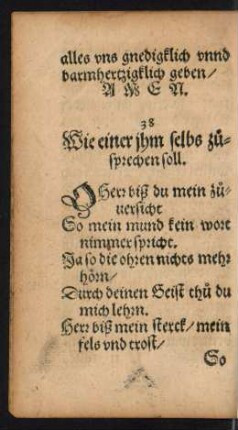 alles vns gnedigklich vnnd
barmhertzigklich geben/
A M E N.
38
Wie einer jhm selbs zů-
sprechen soll.
O Herr biß du mein zů-
uersicht
So mein mund kein wort
nimmer spricht.
Ja so die ohren nichts mehr
hörn/
Durch deinen Geist thů du
mich lehrn.
Herr biß mein sterck/ mein
fels vnd trost/
So